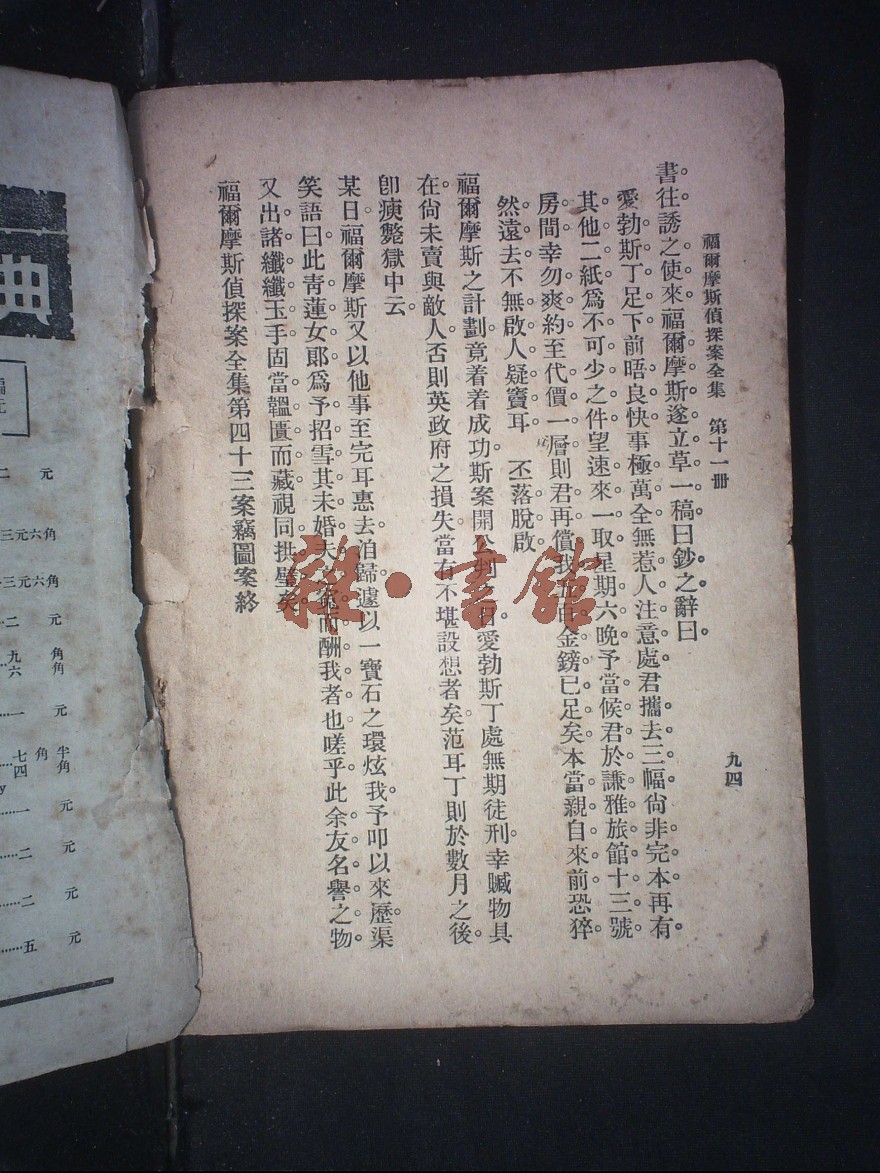 福爾摩斯偵探案全集　第十一册
九四
書往誘之使來福爾摩斯遂立草一稿曰鈔之辭曰。
愛勃斯丁足下前晤良快事極萬全無惹人注意處君攜去三幅尙非完本再有。
其他二紙爲不可少之件望速來一取星期六晚予當候君於謙雅旅館十三號
房間幸勿爽約至代價一層則君再償我五百金鎊已足矣本當親自來前恐猝。
然遠去不無啟人疑竇耳　丕落脫啟
福爾摩斯之計劃竟着着成功斯案開公判日愛勃斯丁處無期徒刑幸贓物具
在尙未賣與敵人否則英政府之損失當有不堪設想者矣范耳丁則於數月之後。
卽瘐斃獄中云
某日福爾摩斯又以他事至完耳惠去洎歸遽以一寶石之環炫我予叩以來歷渠
笑語曰此靑蓮女郞爲予招雪其未婚夫之寃而酬我者也嗟乎此余友名譽之物
又出諸纖纖玉手固當韞匱而藏視同拱璧矣
福爾摩斯偵探案全集第四十三案竊圖案終
雜·書館
典
二　元
三元六角
三元六角
二　元
九　角
六　角
一　元
七　角半
四　角
y
一　元
二　元
二　元
五　元